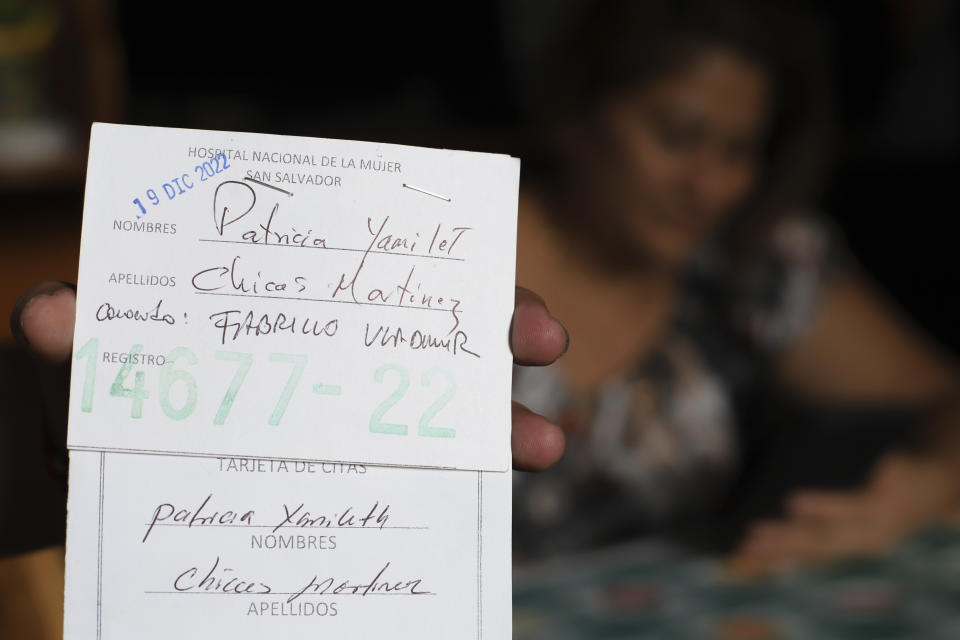 HOSPITAL NACIONAL DE LA MUJER
SAN SALVADOR
19 DIC 2022
NOMBRES Patricia Yamilet
APELLIDOS Chicas Martinez
FABRICIO VLADIMIR
REGISTRO
14677-22
TARJETA DE CITAS
Patricia Yamileth
NOMBRES
Chicas Martinez
APELLIDOS